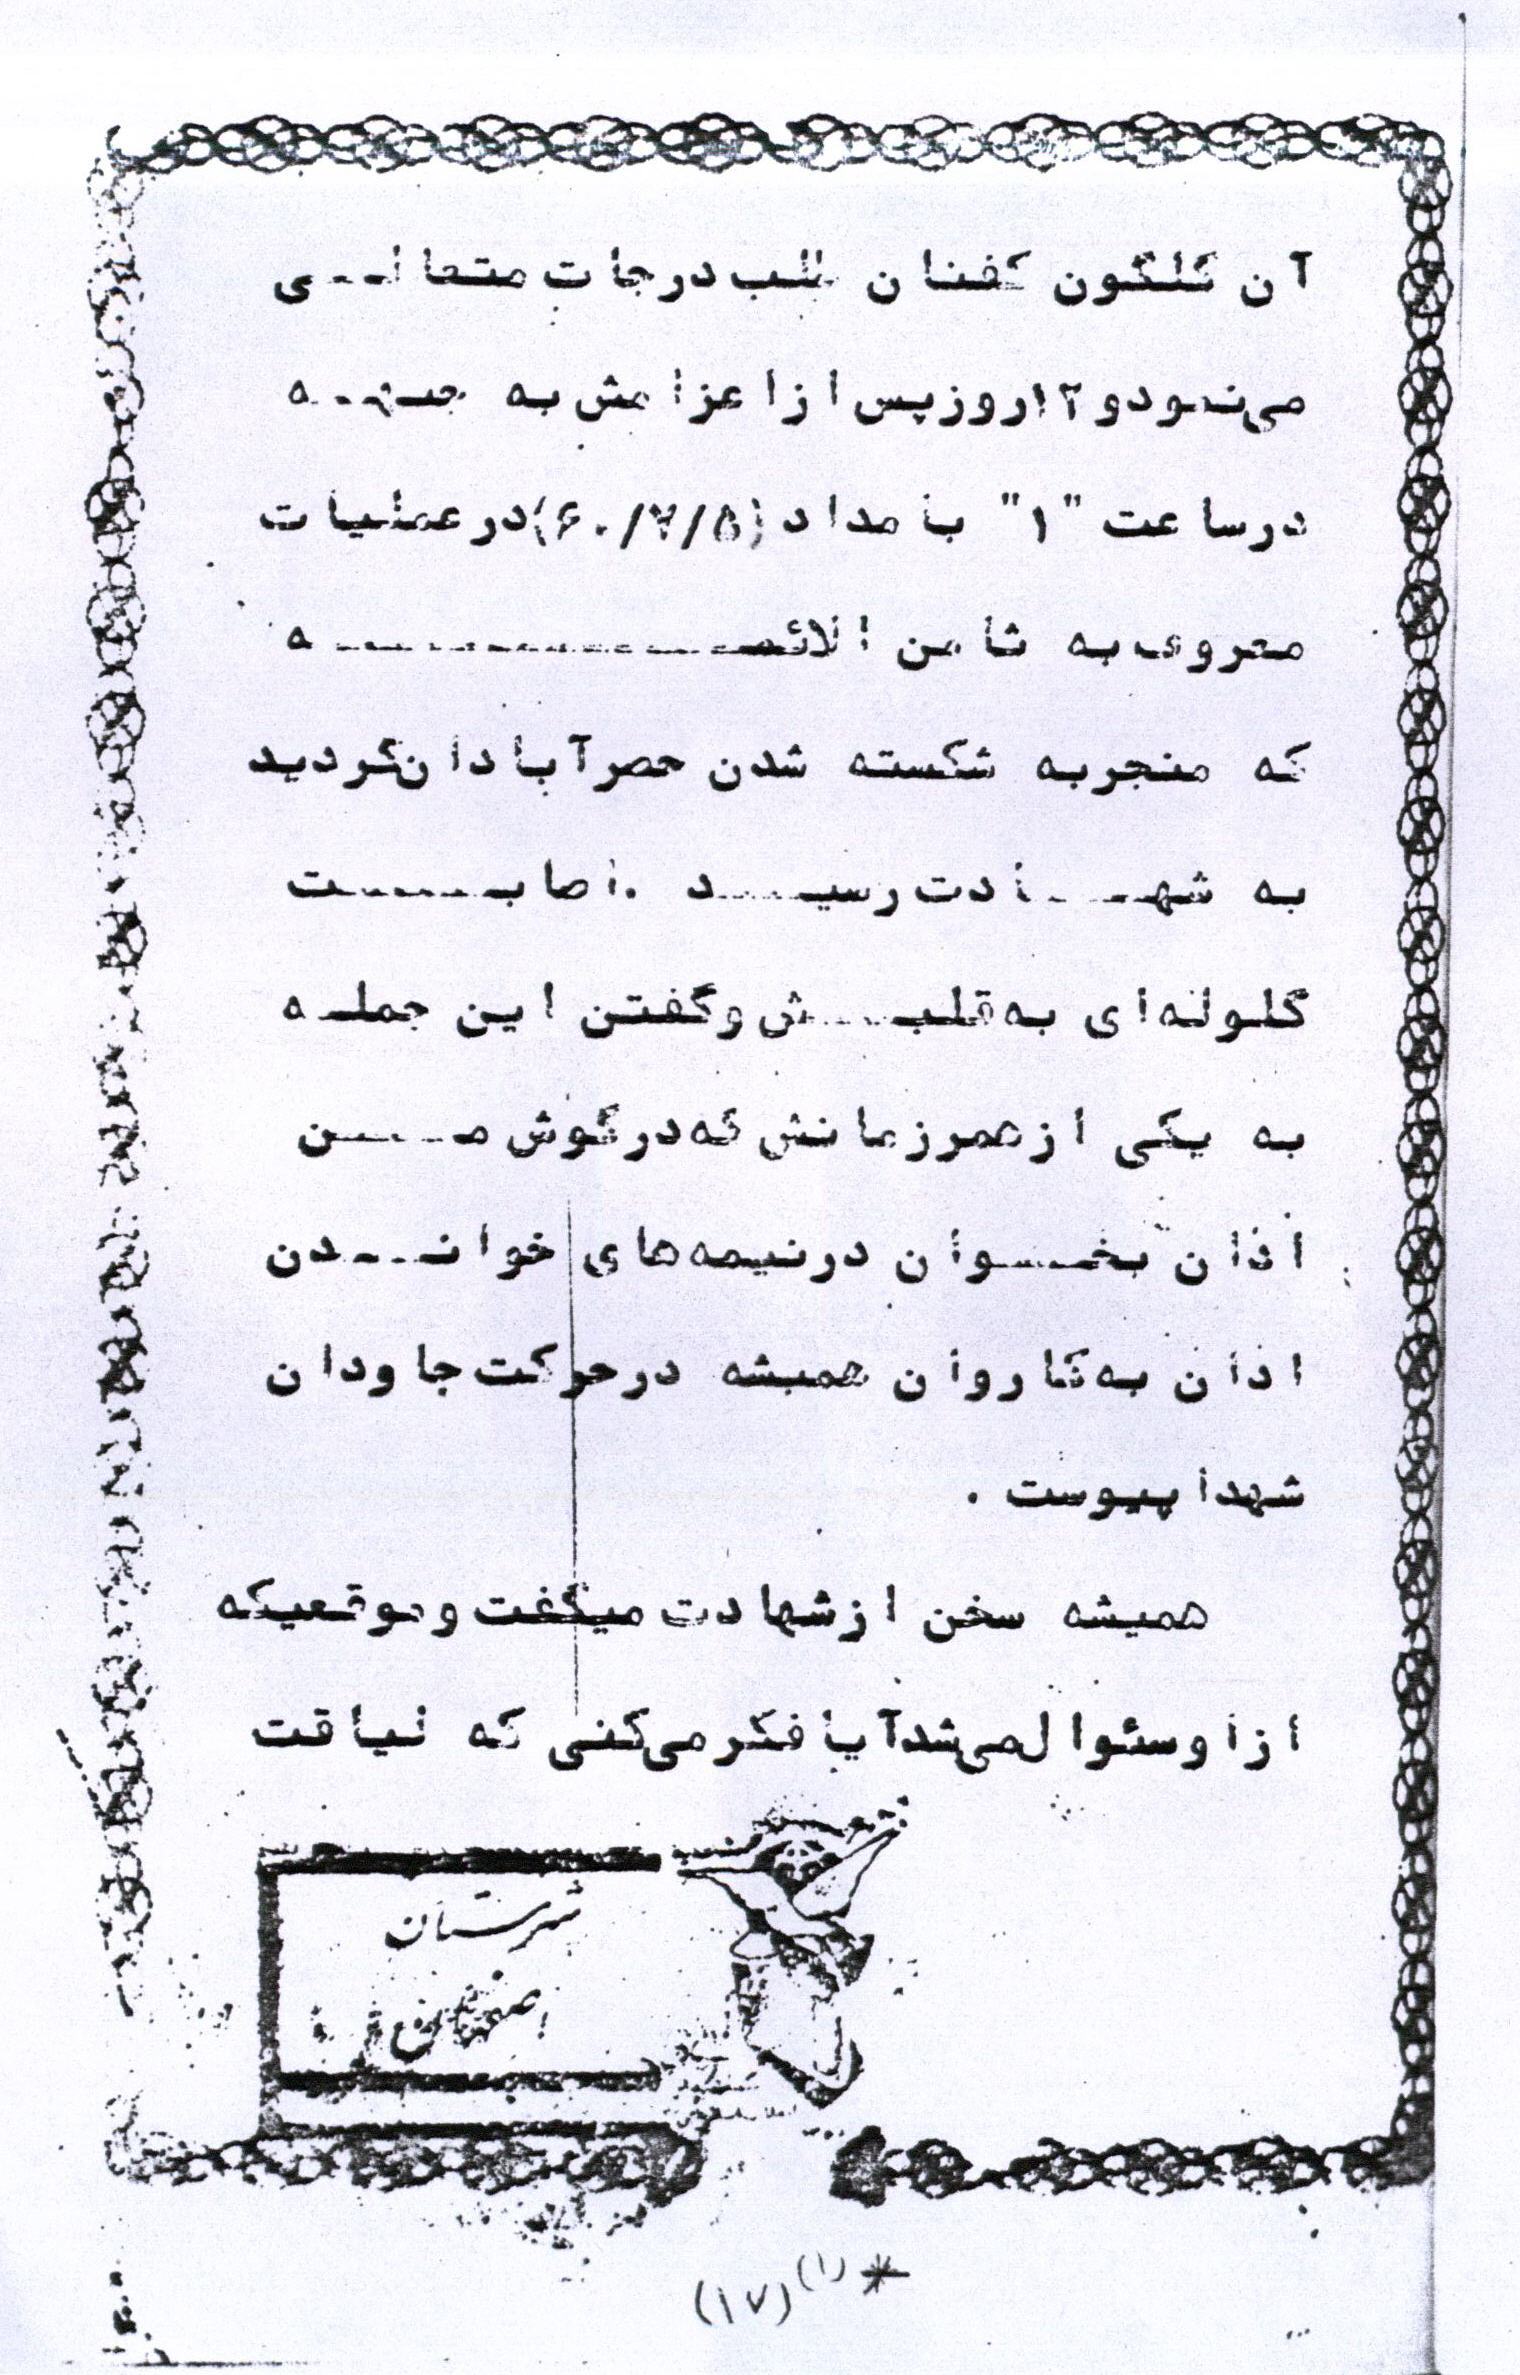 آن گلگون کفنان طلب درجات متعالی
می‌نمود و ۱۲ روز پس از اعزامش به جبهه
در ساعت "۱" بامداد (۶۰/۷/۵) در عملیات
معروف به ثامن الائمه
که منجر به شکسته شدن حصر آبادان گردید
به شهادت رسید . اصابت
گلوله‌ای به قلبش و گفتن این جمله
به یکی از همرزمانش که در گوش من
اذان بخوان در نیمه‌های خواندن
اذان به کاروان همیشه در حرکت جاودان
شهدا پیوست .
همیشه سخن از شهادت میگفت و موقعیکه
از او سئوال می‌شد آیا فکر می‌کنی که لیاقت
شهرستان
* (۱) (۱۷)